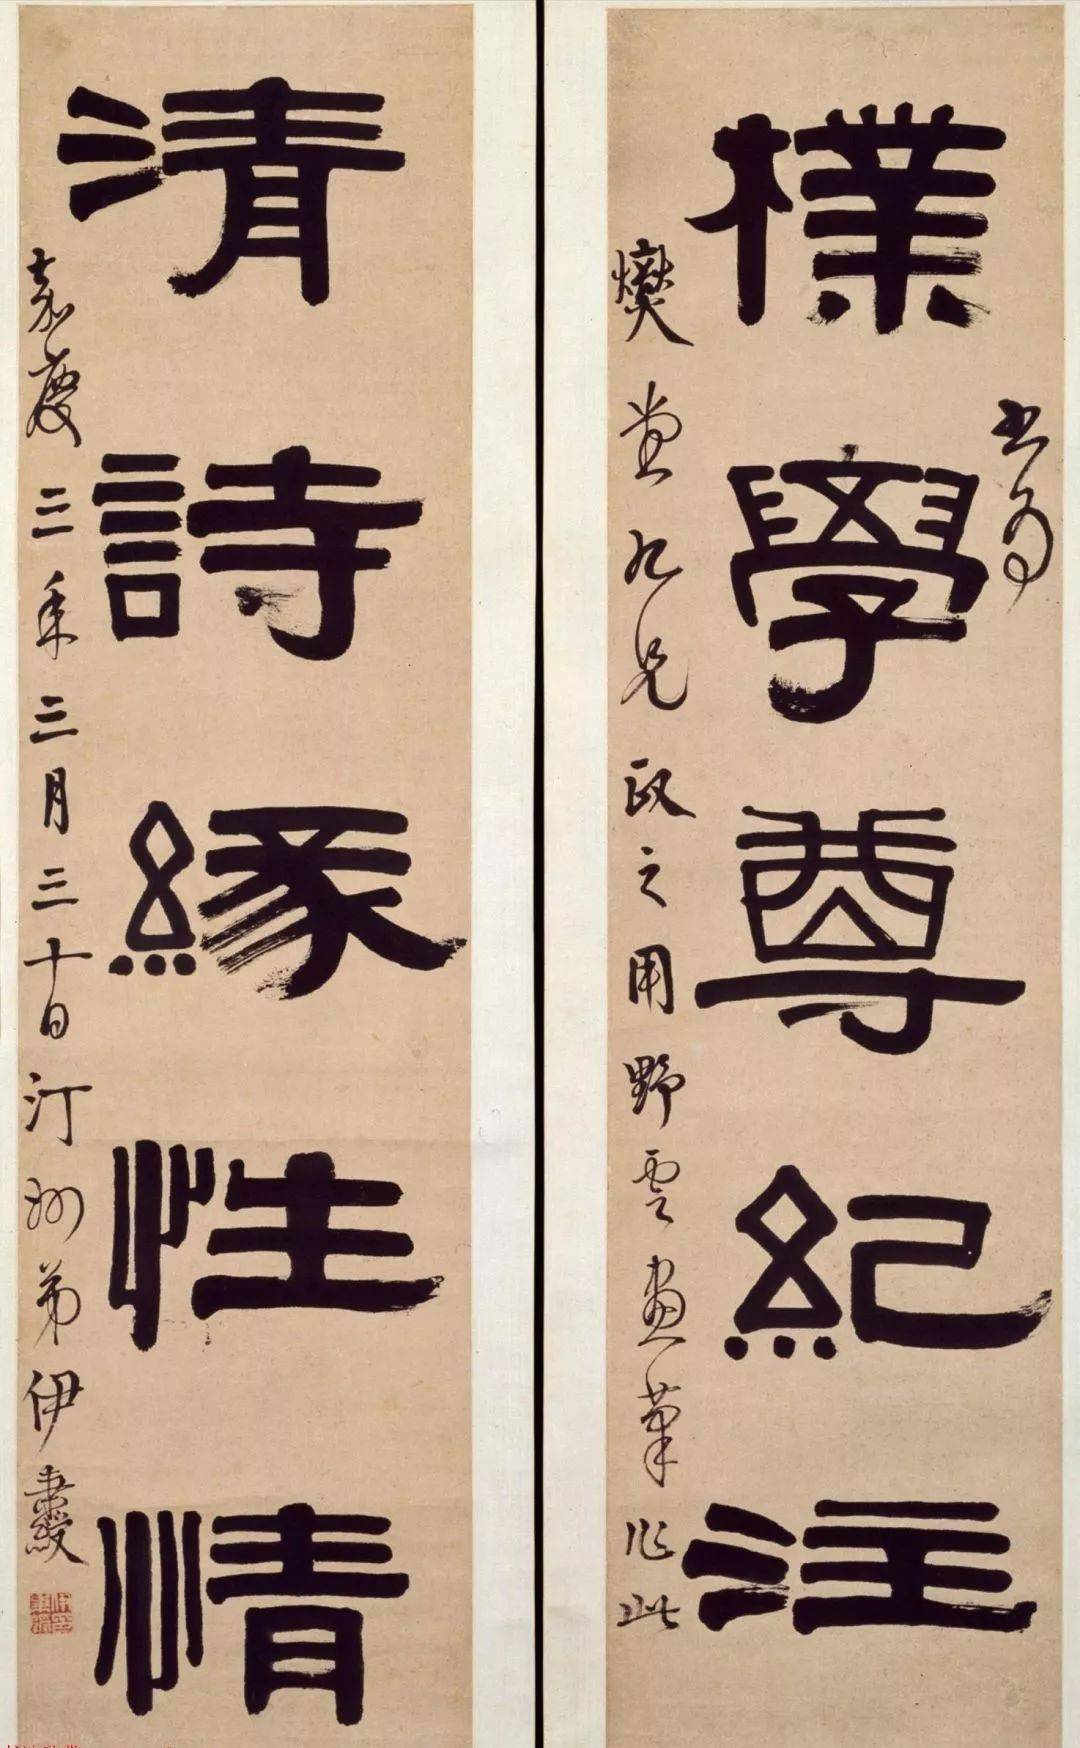 書為
樸學尊紀注
燮堂九兄政之用野雲畫筆作此
清詩緣性情
嘉慶三年三月三十日汀州弟伊秉綬